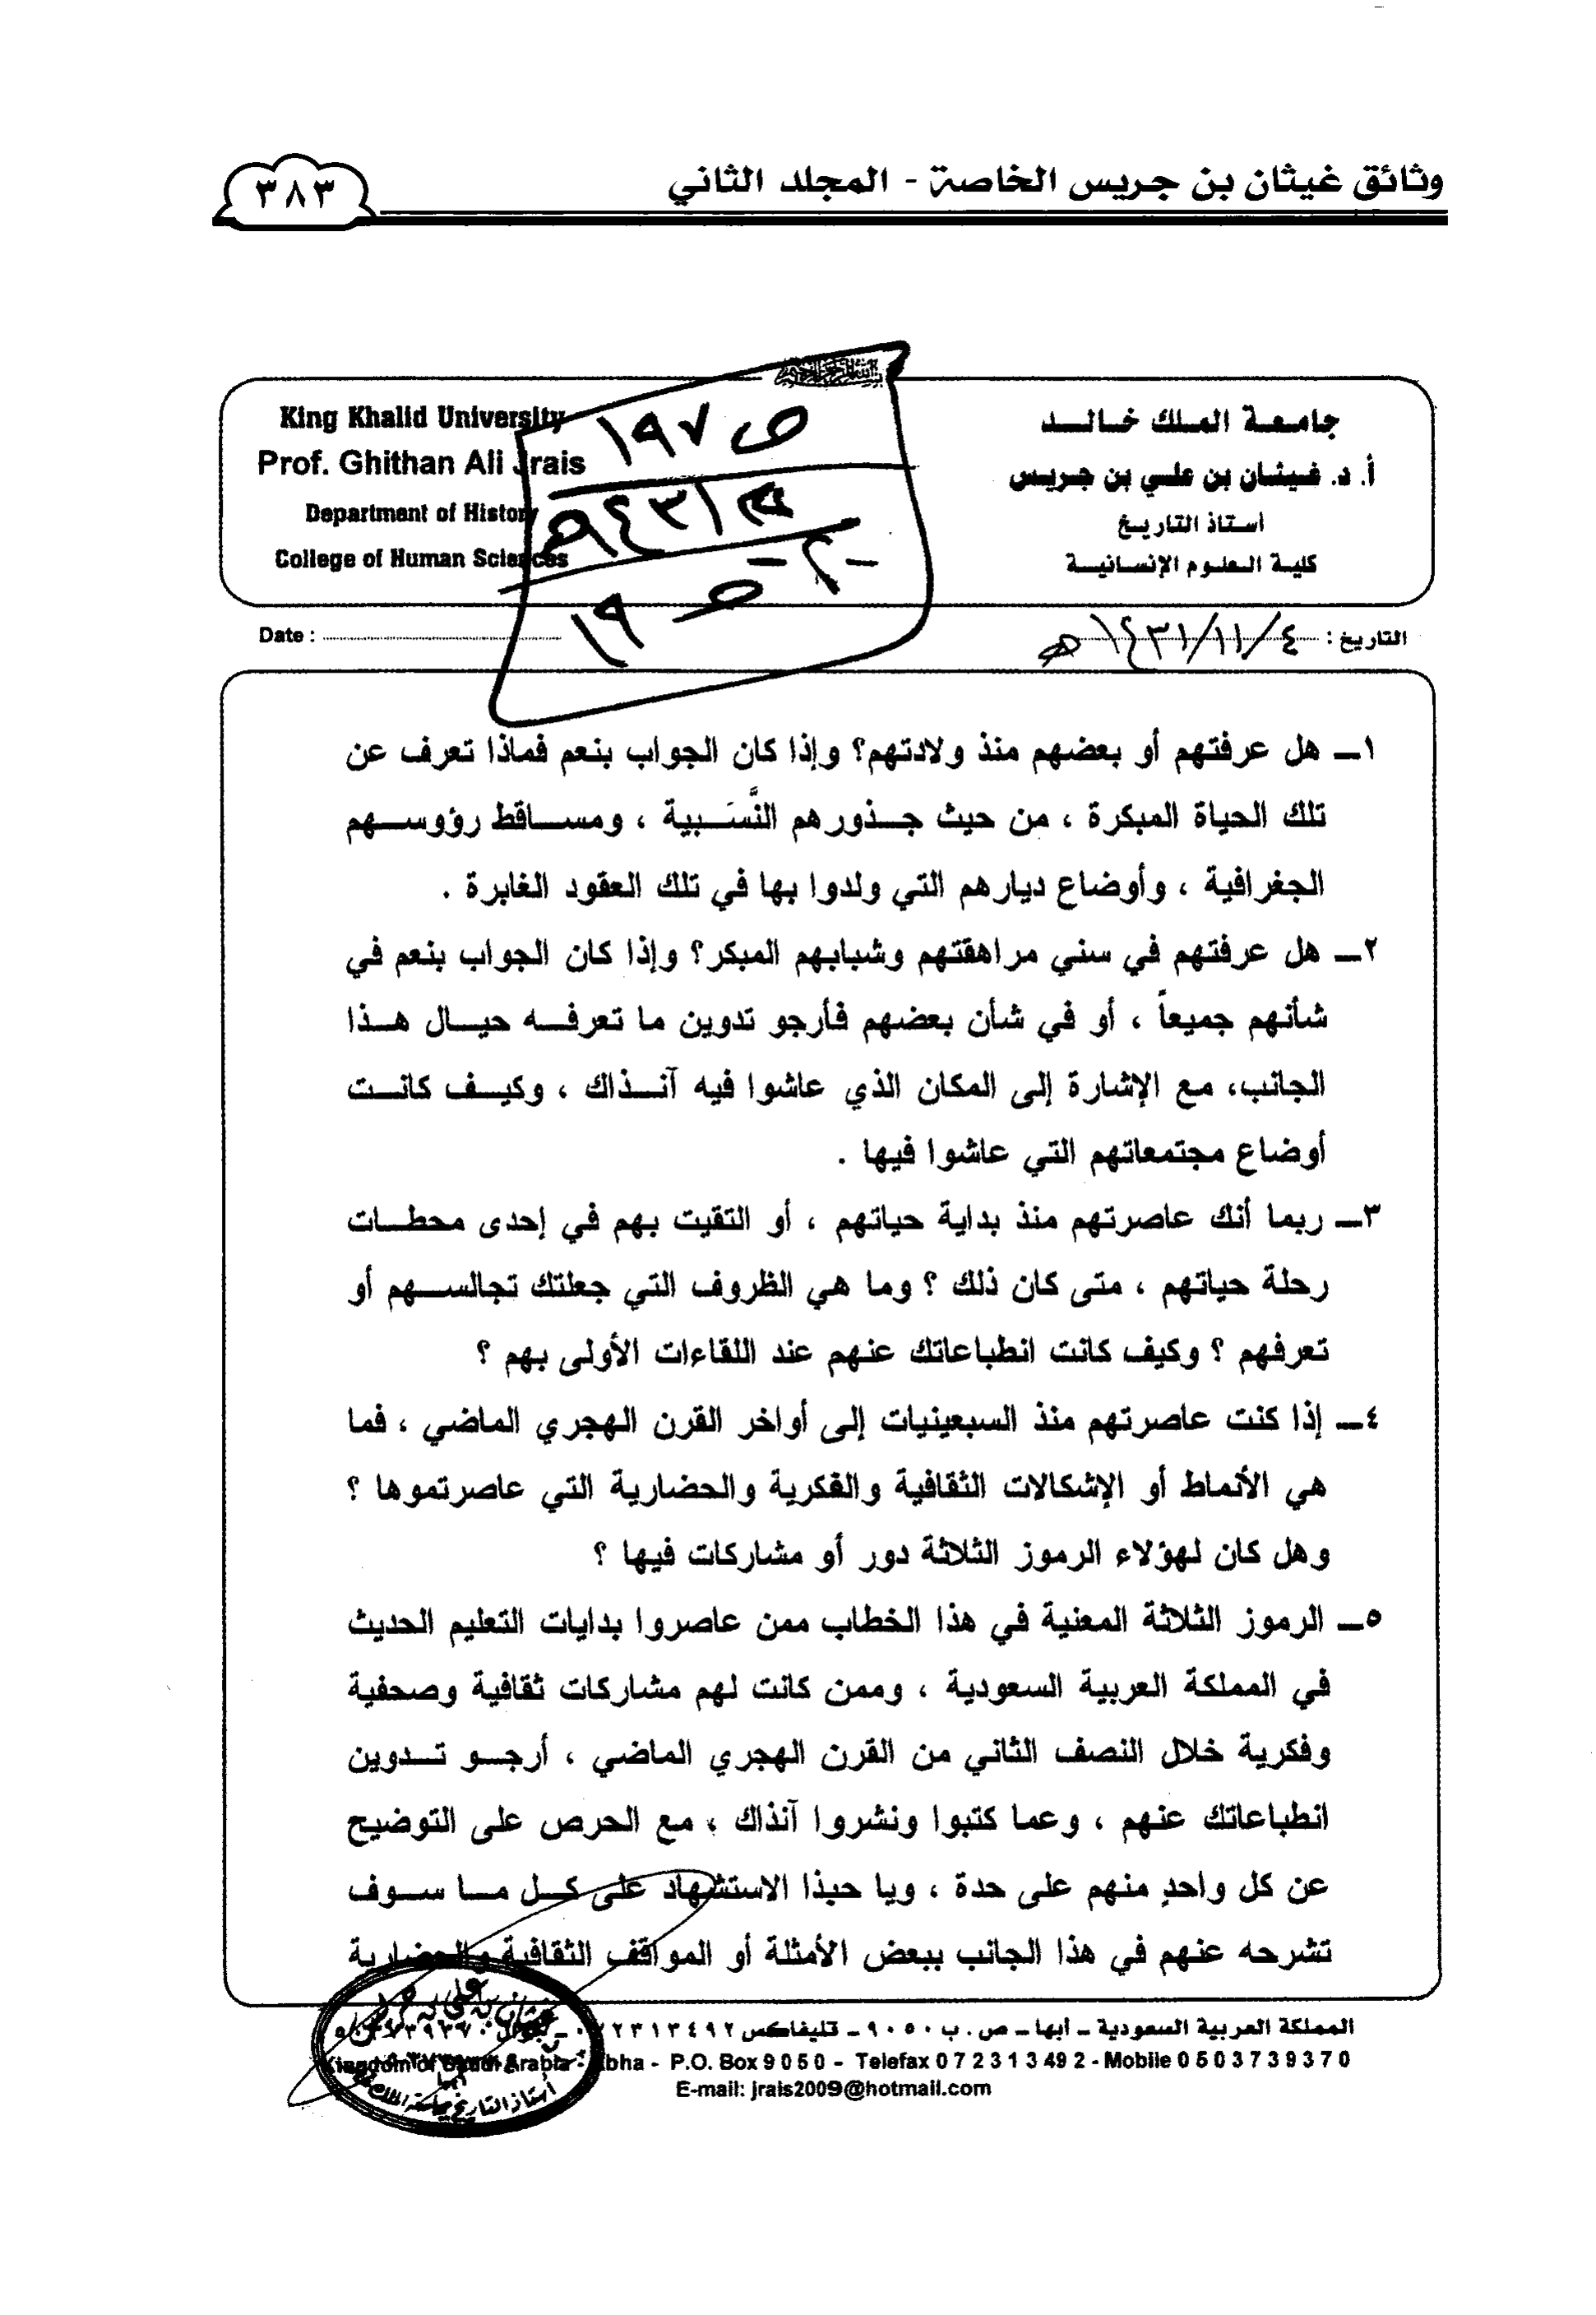 وثائق غيثان بن جريس الخاصة - المجلد الثاني
٣٨٣
جامعة الملك خالد
أ. د. غيثان بن علي بن جريس
أستاذ التاريخ
كلية العلوم الإنسانية
King Khalid University
Prof. Ghithan Ali Jrais
Department of History
College of Human Sciences
ص ١٩٧
١٤٣١هـ
-٢-
١٩
التاريخ : ١٤٣١/١١/٤هـ
Date :
١ـ هل عرفتهم أو بعضهم منذ ولادتهم؟ وإذا كان الجواب بنعم فماذا تعرف عن
تلك الحياة المبكرة ، من حيث جذورهم النَّسَبية ، ومساقط رؤوسهم
الجغرافية ، وأوضاع ديارهم التي ولدوا بها في تلك العقود الغابرة .
٢ـ هل عرفتهم في سني مراهقتهم وشبابهم المبكر؟ وإذا كان الجواب بنعم في
شأنهم جميعاً ، أو في شأن بعضهم فأرجو تدوين ما تعرفه حيال هذا
الجانب، مع الإشارة إلى المكان الذي عاشوا فيه آنذاك ، وكيف كانت
أوضاع مجتمعاتهم التي عاشوا فيها .
٣ـ ربما أنك عاصرتهم منذ بداية حياتهم ، أو التقيت بهم في إحدى محطات
رحلة حياتهم ، متى كان ذلك ؟ وما هي الظروف التي جعلتك تجالسهم أو
تعرفهم ؟ وكيف كانت انطباعاتك عنهم عند اللقاءات الأولى بهم ؟
٤ـ إذا كنت عاصرتهم منذ السبعينيات إلى أواخر القرن الهجري الماضي ، فما
هي الأنماط أو الإشكالات الثقافية والفكرية والحضارية التي عاصرتموها ؟
وهل كان لهؤلاء الرموز الثلاثة دور أو مشاركات فيها ؟
٥ـ الرموز الثلاثة المعنية في هذا الخطاب ممن عاصروا بدايات التعليم الحديث
في المملكة العربية السعودية ، وممن كانت لهم مشاركات ثقافية وصحفية
وفكرية خلال النصف الثاني من القرن الهجري الماضي ، أرجو تدوين
انطباعاتك عنهم ، وعما كتبوا ونشروا آنذاك ، مع الحرص على التوضيح
عن كل واحدٍ منهم على حدة ، ويا حبذا الاستشهاد على كل ما سوف
تشرحه عنهم في هذا الجانب ببعض الأمثلة أو المواقف الثقافية والحضارية
المملكة العربية السعودية ـ أبها ـ ص . ب ٩٠٥٠ ـ تليفاكس ٠٧٢٣١٣٤٩٢ ـ جوال ٠٥٠٣٧٣٩٣٧٠
Kingdom of Saudi Arabia - Abha - P.O. Box 9050 - Telefax 072313492 - Mobile 0503739370
E-mail: jrais2009@hotmail.com